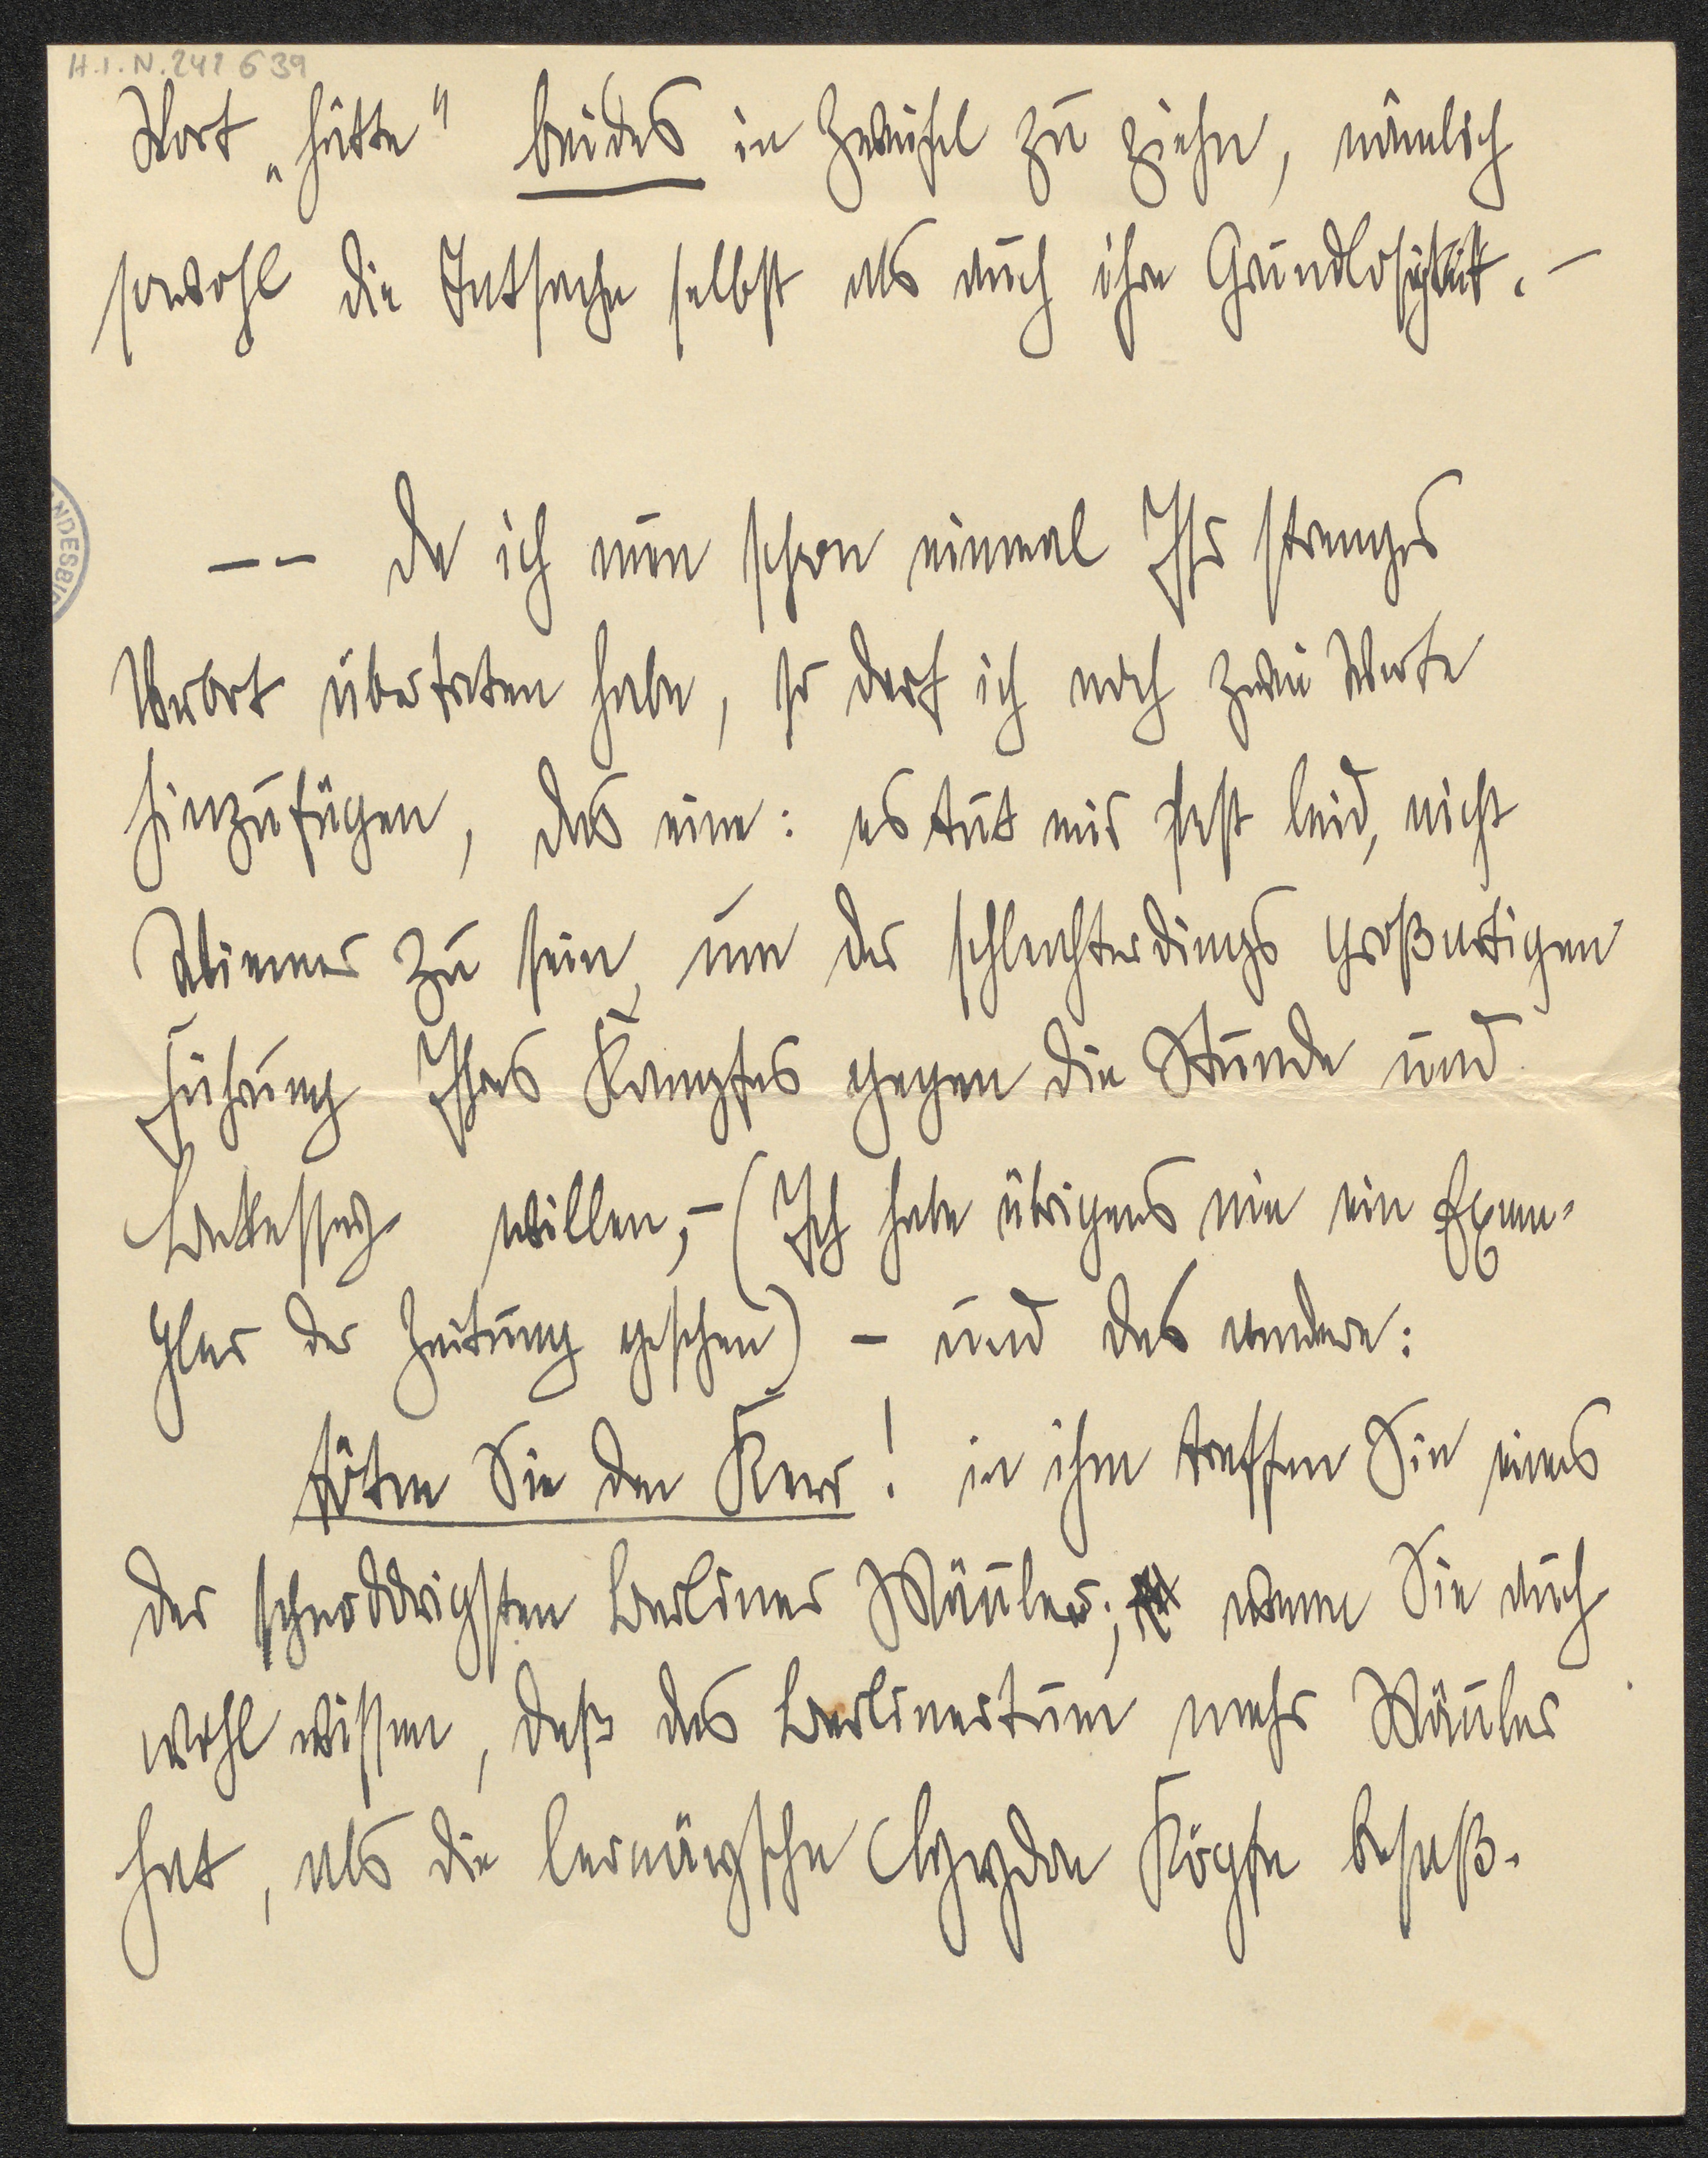 H.I.N. 242639
Wort „hätte“ beides in Zweifel zu ziehn, nämlich
sowohl die Tatsache selbst als auch ihre Grundlosigkeit. –
NDESBI
–– da ich nun schon einmal Ihr strenges
Verbot übertreten habe, so darf ich noch zwei Worte
hinzufügen, das eine: es tut mir fast leid, nicht
Wiener zu sein, um der schlechterdings großartigen
Führung Ihres Kampfes gegen die Stunde und
Bekessy willen, – (Ich habe übrigens nie ein Exem-
plar der Zeitung gesehen) – und das andere:
töten Sie den Kerr! in ihm treffen Sie eines
der schnoddrigsten Berliner Mäuler; wenn Sie auch
wohl wissen, daß das Berlinertum mehr Mäuler
hat, als die lernäische Hydra Köpfe besaß.